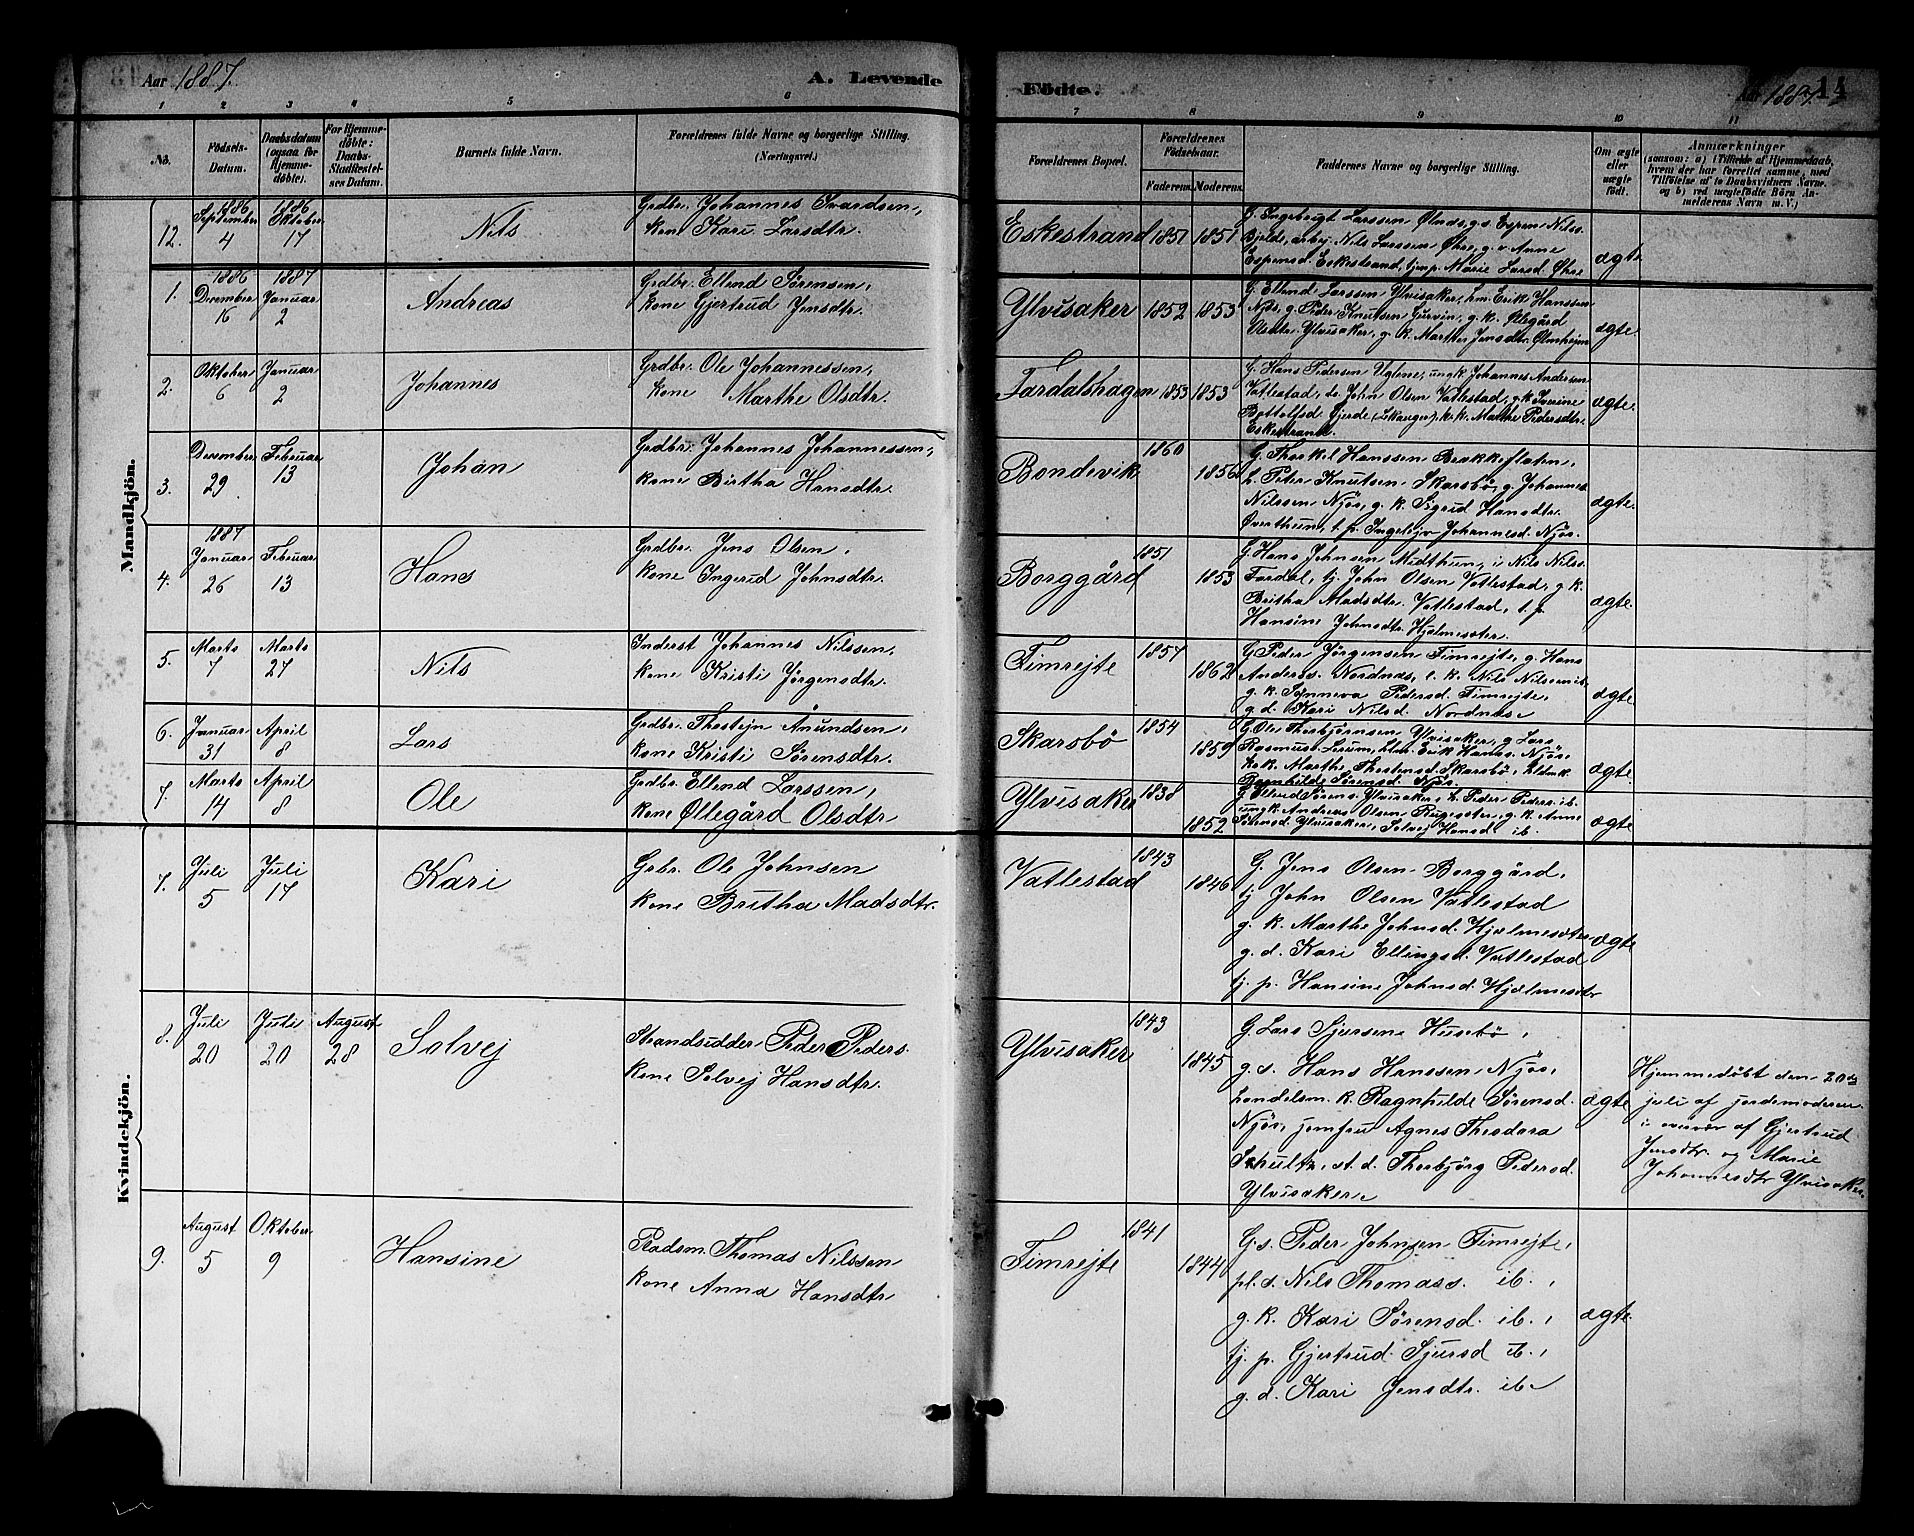 Aar 1887.
A. Levende
Födte.
Aar 1887.
14
1 2 3 4 5 6 7 8 9 10 11
No.
Födsels-
Datum.
Daabsdatum
(ogsaa for
Hjemme-
döbte).
For Hjemme-
döbte:
Daabs-
Stadfæstel-
ses Datum.
Barnets fulde Navn.
Forældrenes fulde Navne og borgerlige Stilling.
(Næringsvei.)
Forældrenes Bopæl.
Forældrenes
Födselsaar.
Faderens. Moderens.
Faddernes Navne og borgerlige Stilling.
Om ægte
eller
uægte
födt.
Anmærkninger
(saasom: a) i Tilfælde af Hjemmedaab,
hvem der har forrettet samme, med
Tilföielse af to Daabsvidners Navne,
og b) ved uægtefödte Börn An-
melderens Navn m.V.)
Mandkjön.
12.
1886
September
4
1886
Oktober
17
Nils
Grdbr. Johannes Ivardsen,
kone Kari Larsdtr.
Eskestrand 1851 1851
G. Ingebrigt Larssen Ølnds, g.s Espen Nils.
Bjelde, arbej. Nils Larssen Øhre, g.v Anne
Espensd. Eskestrand, tj.np. Marie Larsd. Øhre
ægte
1.
1886
December
16
1887
Januar
2
Andreas
Grdbr. Ellend Sørensen,
kone Gjertrud Jensdtr.
Ylvisaker 1852 1853
G. Ellend Larssen Ylvisaker, hm. Erik Hanssen
Njøs, g. Peder Knutsen Gurvin, g.k. Øllegård
Olsdtr. Ylvisaker, g.k. Marthe Jensdtr. Ølmhejm
ægte
2.
Oktober
6
Januar
2
Johannes
Grdbr. Ole Johannessen,
kone Marthe Olsdtr.
Fardalshagen 1853 1853
G. Hans Pedersen Uglene, ungk. Johannes Andersen
Vatlestad, do. John Olsen Vatlestad, g.k. Severine
Bottolfsd. Gjerde, (Skauge), k.k. Marthe Pedersdtr.
Eskestrand.
ægte.
3.
December
29
Februar
13
Johan
Grdbr. Johannes Johannessen,
kone Birtha Hansdtr.
Bondevik 1860 1856
G. Thorkel Hanssen Brækkeflaten,
h. Peter Knutsen Skarsbø, g. Johannes
Nilssen Njøs, g.k. Sigrud Hansdtr.
Øvrethun, t.p. Ingelejv Johannesd. Njøs.
ægte.
4.
1887
Januar
26
Februar
13
Hans
Grdbr. Jens Olsen,
kone Ingerid Johnsdtr.
Borggård 1851 1853
G. Hans Johnsen Midthun, i Nils Nilss.
Fardal, tj. John Olsen Vatlestad, g.k.
Britha Madsdtr. Vatlestad, t.p.
Hansine Johnsdtr. Hjelmesæter.
ægte.
5.
Marts
7
Marts
27
Nils
Inderst Johannes Nilssen,
kone Kristi Jørgensdtr.
Timrejte 1857 1862
G. Peder Jørgensen Timrejte, g. Hans
Anderss. Nordnæs, e.k. Nils Nilssen ib.
g.k. Synneva Pedersd. Timrejte,
g.d. Kari Nilsd Nordnæs
ægte
6.
Januar
31
April
8
Lars
Grdbr. Thostejn Ånundsen,
kone Kristi Sørensdtr.
Skarsbø 1854 1859
G. Ole Thorbjørnsen Ylvisaker, g. Lars
Rasmuss. Lerum, hm. Erik Hanss. Njøs,
k.k. Marthe Thostensd. Skarsbø,
Ragnhilde Sørensd. Njøs.
ægte
7.
Marts
14
April
8
Ole
Grdbr. Ellend Larssen,
kone Øllegård Olsdtr
Ylvisaker 1838 1852
G. Ellend Sørens. Ylvisaker, h. Peder Peders. ib.
ungk. Andreas Olsen Rugesæter, g.k. Anne
Sørensd. Ylvisaker, Solvej Hansd ib.
ægte
Kvindekjön.
7.
Juli
5
Juli
17
Kari
Grbr. Ole Johnsen
kone Britha Madsdtr.
Vatlestad 1843 1846
G. Jens Olsen Borggård,
tj John Olsen Vatlestad
g.k. Marthe Johnsd. Hjelmesæter
g.d. Kari Ellingsd. Vatlestad
tj.p. Hansine Johnsd. Hjelmesætr
ægte
8.
Juli
20
Juli
20
August
28
Solvej
Strandsidder Peder Peders.
kone Solvej Hansdtr.
Ylvisaker 1843 1845
G. Lars Sjursene Husebø,
g.s. Hans Hanssen Njøs,
handelsm. k. Ragnhilde Sørensd.
Njøs, jomfru Agnes Theodora
Schultz, st.d. Thorbjørg Pedersd.
Ylvisaker.
ægte
Hjemmedøbt den 20de
juli af jordemoderen
i overvær af Gjertrud
Jensdtr. og Marie
Johannesdtr Ylvisaker.
9.
August
5
Oktober
9
Hansine
Pladsm. Thomas Nilssen
kone Anna Hansdtr
Timrejte 1841 1844
G.s. Peder Johnsen Timrejte,
pl.s. Nils Thomass. ib.,
g.k. Kari Sørensd. ib.,
tj.p. Gjertrud Sjursd ib.,
g.d. Kari Jensdtr. ib.
ægte.